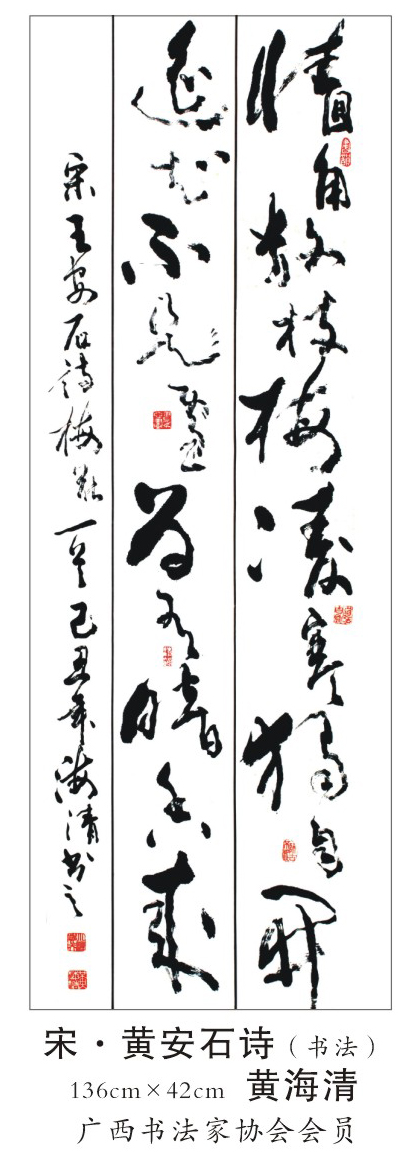 牆角數枝梅凌寒獨自開
遥知不是雪為有暗香來
宋王安石詩梅花一首己丑年海清書之
宋·黄安石诗（书法）
136cm×42cm 黄海清
广西书法家协会会员